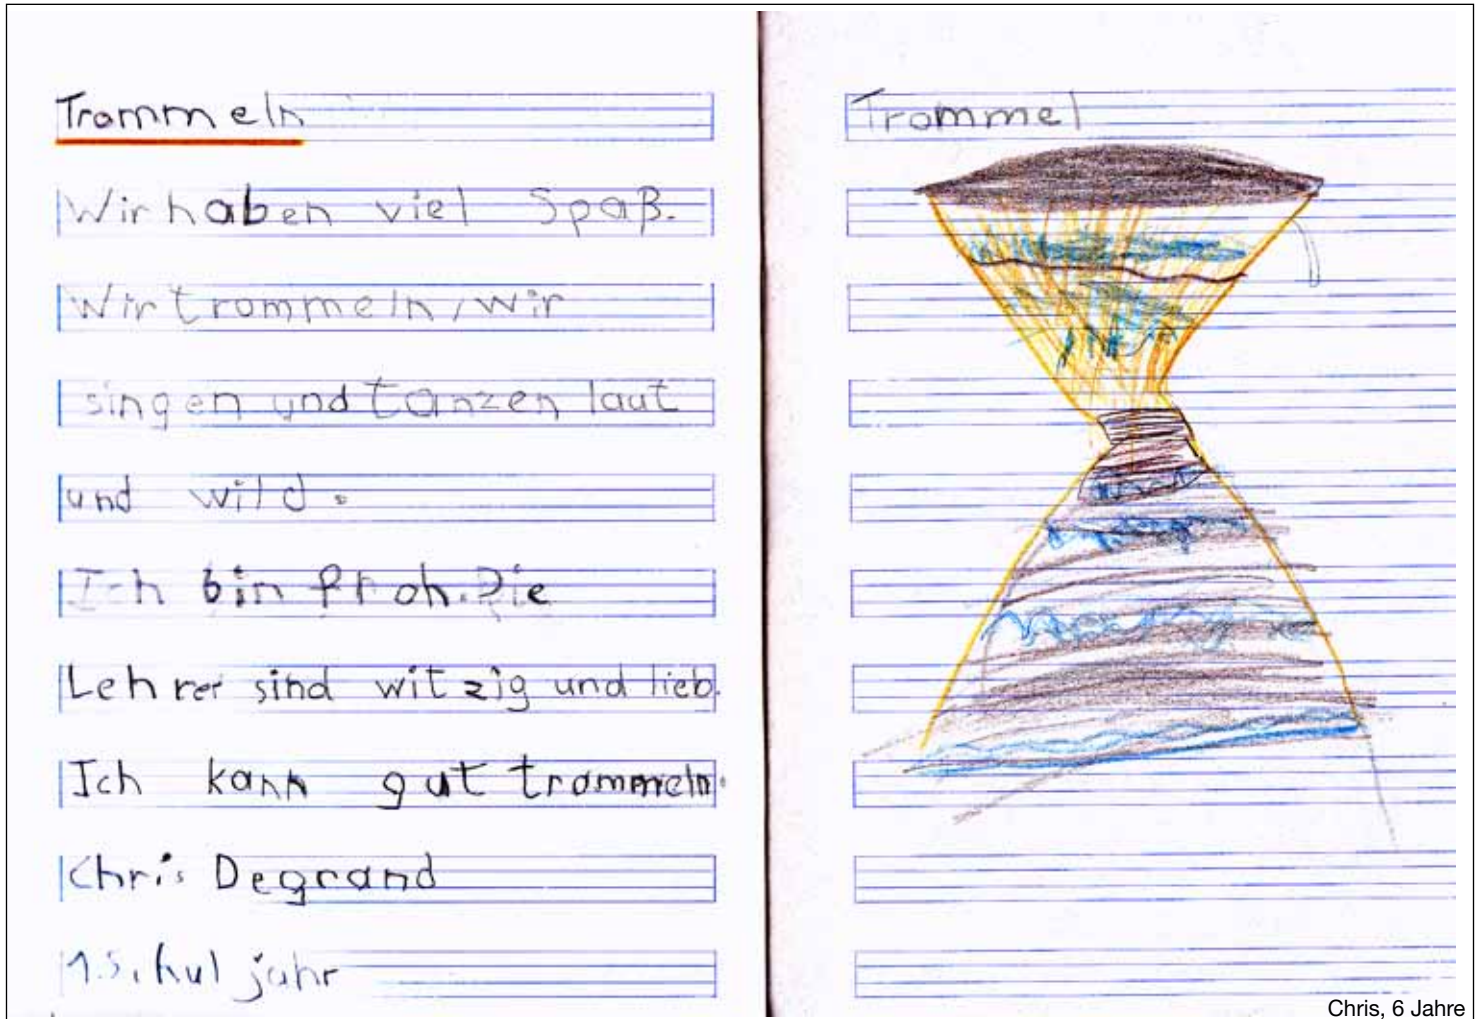 Trommeln
Wir haben viel Spaß.
Wir trommeln, wir
singen und tanzen laut
und wild.
Ich bin froh. Die
Lehrer sind witzig und lieb.
Ich kann gut trommeln.
Chris Degrand
1. Schuljahr
Trommel
Chris, 6 Jahre